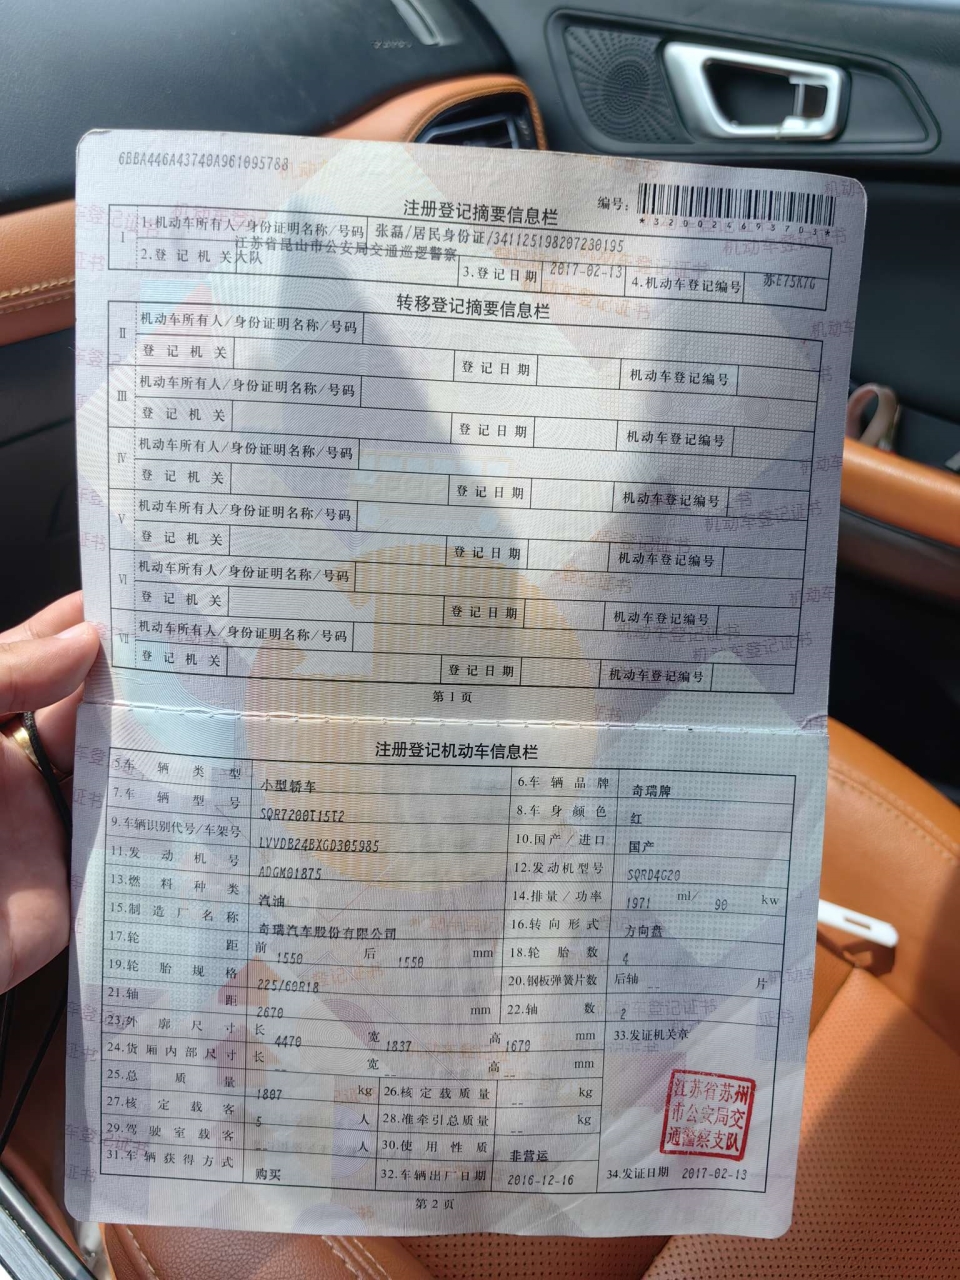 6BBA446A43740A961095788
编号:
*320024693703*
注册登记摘要信息栏
I
1.机动车所有人/身份证明名称/号码 张磊/居民身份证/341125198207230195
2.登记机关 江苏省昆山市公安局交通巡逻警察大队 3.登记日期 2017-02-13 4.机动车登记编号 苏E75K7G
转移登记摘要信息栏
II 机动车所有人/身份证明名称/号码
登记机关 登记日期 机动车登记编号
III 机动车所有人/身份证明名称/号码
登记机关 登记日期 机动车登记编号
IV 机动车所有人/身份证明名称/号码
登记机关 登记日期 机动车登记编号
V 机动车所有人/身份证明名称/号码
登记机关 登记日期 机动车登记编号
VI 机动车所有人/身份证明名称/号码
登记机关 登记日期 机动车登记编号
VII 机动车所有人/身份证明名称/号码
登记机关 登记日期 机动车登记编号
第1页
注册登记机动车信息栏
5.车辆类型 小型轿车 6.车辆品牌 奇瑞牌
7.车辆型号 SQR7200T15T2 8.车身颜色 红
9.车辆识别代号/车架号 LVVDB24BXGD305985 10.国产/进口 国产
11.发动机号 ADGM01875 12.发动机型号 SQRD4G20
13.燃料种类 汽油 14.排量/功率 1971 ml/ 90 kw
15.制造厂名称 奇瑞汽车股份有限公司 16.转向形式 方向盘
17.轮距 前 1550 后 1550 mm 18.轮胎数 4
19.轮胎规格 225/60R18 20.钢板弹簧片数 后轴 -- 片
21.轴距 2670 mm 22.轴数 2
23.外廓尺寸 长 4470 宽 1837 高 1670 mm 33.发证机关章
24.货厢内部尺寸 长 -- 宽 -- 高 -- mm
25.总质量 1807 kg 26.核定载质量 -- kg
27.核定载客 5 人 28.准牵引总质量 -- kg
29.驾驶室载客 -- 人 30.使用性质 非营运
31.车辆获得方式 购买 32.车辆出厂日期 2016-12-16 34.发证日期 2017-02-13
江苏省苏州
市公安局交
通警察支队
第2页